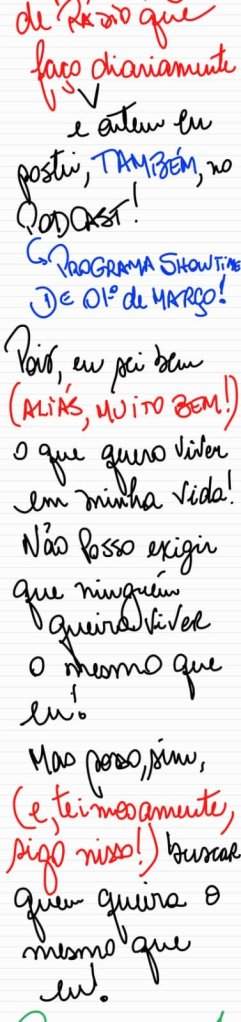 de RÁDIO que
faço diariamente
e ontem eu
postei, TAMBÉM, no
PODCAST!
PROGRAMA SHOWTIME
DE 01º de MARÇO!
Pois, eu sei bem
(ALIÁS, MUITO BEM!)
o que quero viver
em minha vida!
Não Posso exigir
que ninguém
queira viver
o mesmo que
eu!
Mas posso, sim,
(e, teimosamente,
sigo nisso!) buscar
quem queira o
mesmo que
eu!